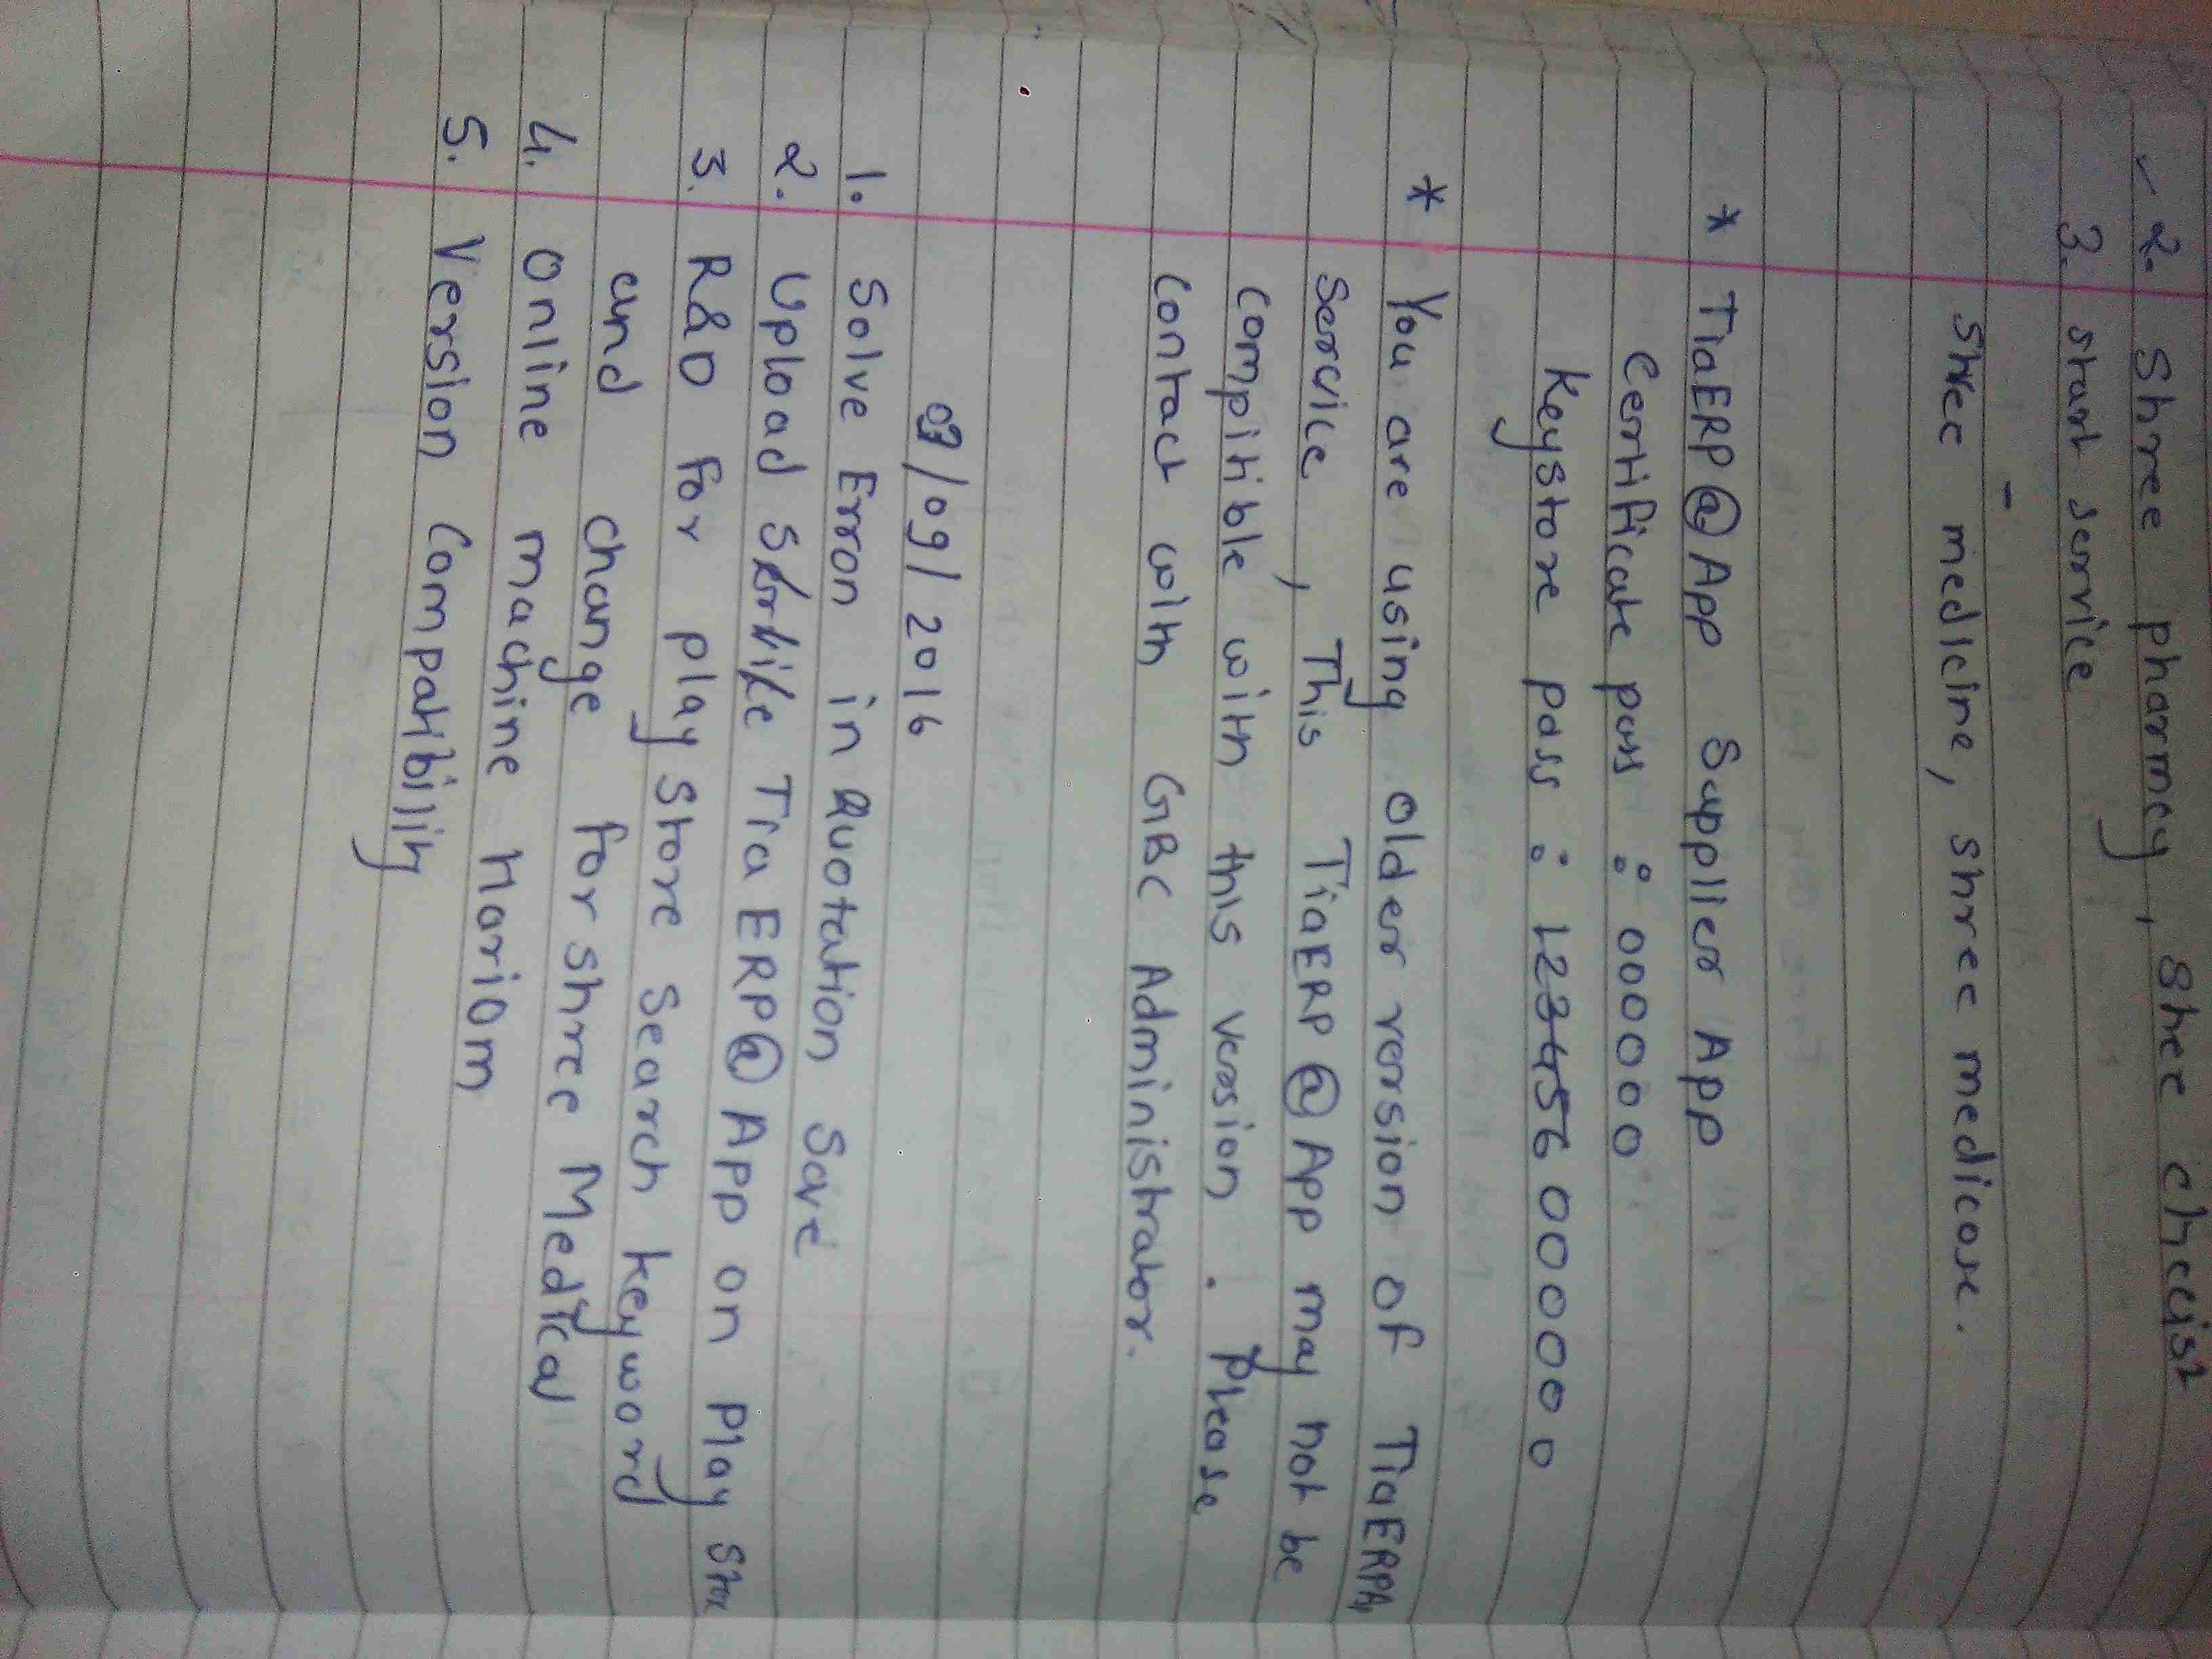 2. Shree pharmcy, Shee checist
3. start service
Shree medicine, shree medicose.
* TiaERP@App Supplier App
Certificate pass : 000000
Keystore pass : 123456 000000
* You are using older version of TiaERP@
Service, This TiaERP@App may not be
compitible with this version. Please
contact with GBC Administrator.
/09/2016
1. Solve Error in Quotation Save
2. Upload TiaERP@App on Play Store
3. R&D for play store Search keyword
and change for shree Medical
4. Online machine HariOm
5. Version Compatibility